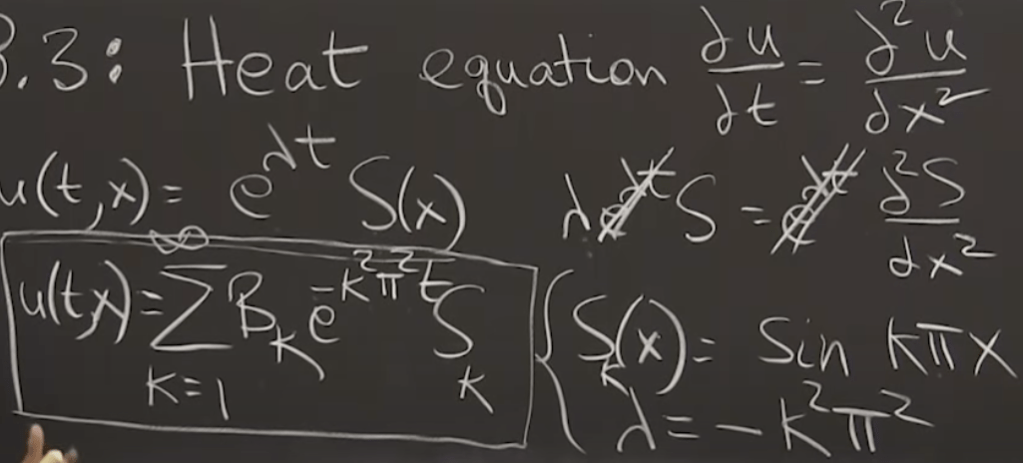 8.3: Heat equation ∂u/∂t = ∂²u/∂x²
u(t,x) = e^{λt} S(x)    λe^{λt} S = e^{λt} ∂²S/∂x²
u(t,x) = ∑_{K=1}^{∞} B_K e^{-K²π²t} S_K    { S_K(x) = Sin Kπx
λ = -K²π²